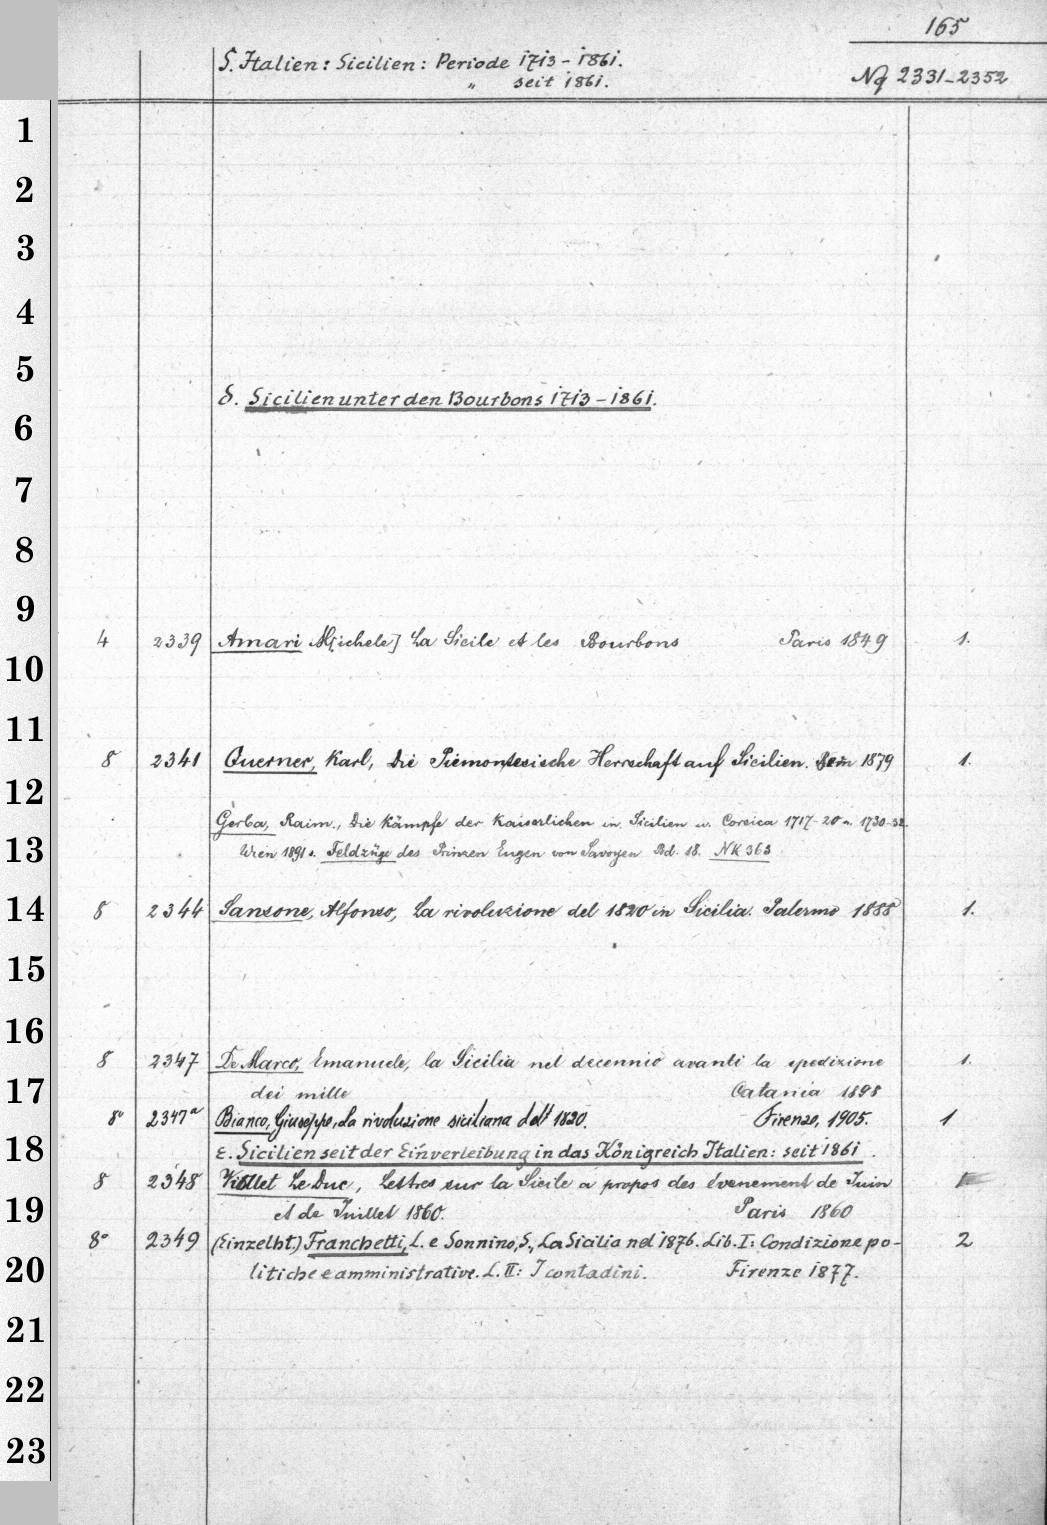 165
5. Italien: Sicilien: Periode 1713-1861.
" seit 1861.
Nq 2331-2352
1
2
3
4
5
δ. Sicilien unter den Bourbons 1713-1861.
6
7
8
9
4 2339 Amari M[ichele] La Sicile et les Bourbons Paris 1849 1.
10
11
8 2341 Querner, Karl, Die Piemontesische Herrschaft auf Sicilien. Bern 1879 1.
12
Gerba, Raim., Die Kämpfe der Kaiserlichen in Sicilien u. Corsica 1717-20 u. 1730-32.
13
Wien 1891 s. Feldzüge des Prinzen Eugen von Savoyen Bd. 18. NK 363
14
8 2344 Sansone, Alfonso, La rivoluzione del 1820 in Sicilia. Palermo 1888 1.
15
16
8 2347 De Marco, Emanuele, la Sicilia nel decennio avanti la spedizione 1.
17
dei mille Catania 1898
8° 2347a Bianco, Giuseppe, La rivoluzione siciliana dell 1820. Firenze, 1905. 1
18
ε. Sicilien seit der Einverleibung in das Königreich Italien: seit 1861.
8 2348 Viollet Le Duc, Lettres sur la Sicile a propos des évenement de Juin
19
et de Juillet 1860. Paris 1860
8° 2349 (Einzelht.) Franchetti, L. e Sonnino, S., La Sicilia nel 1876. Lib. I: Condizione po-
2
20
litiche e amministrative. L. II: I contadini. Firenze 1877.
21
22
23